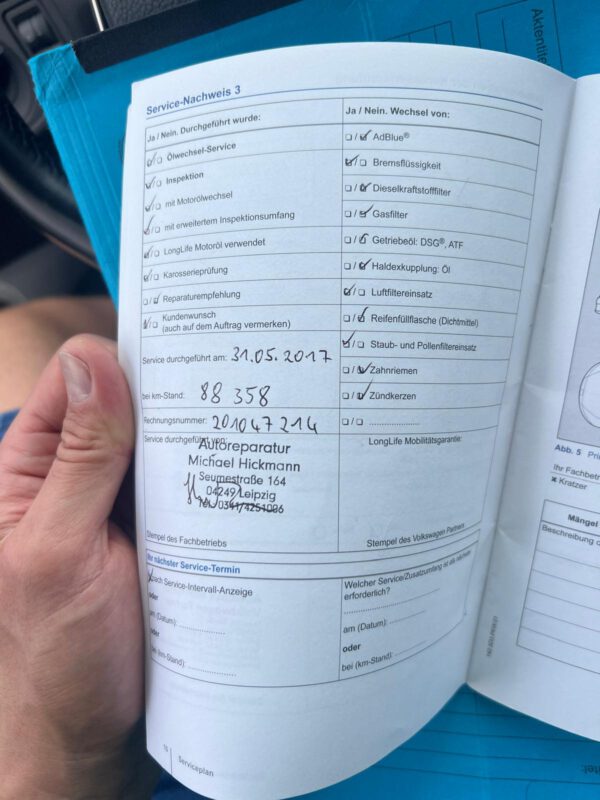 Aktentite
Service-Nachweis 3
Ja / Nein. Durchgeführt wurde:
Ölwechsel-Service
Inspektion
mit Motorölwechsel
mit erweitertem Inspektionsumfang
LongLife Motoröl verwendet
Karosserieprüfung
Reparaturempfehlung
Kundenwunsch
(auch auf dem Auftrag vermerken)
Service durchgeführt am: 31.05.2017
bei km-Stand: 88 358
Rechnungsnummer: 201047214
Service durchgeführt von:
Autoreparatur
Michael Hickmann
Seumestraße 164
04249 Leipzig
Tel. 0341/4251086
Stempel des Fachbetriebs
Ja / Nein. Wechsel von:
AdBlue®
Bremsflüssigkeit
Dieselkraftstofffilter
Gasfilter
Getriebeöl: DSG®, ATF
Haldexkupplung: Öl
Luftfiltereinsatz
Reifenfüllflasche (Dichtmittel)
Staub- und Pollenfiltereinsatz
Zahnriemen
Zündkerzen
....................
LongLife Mobilitätsgarantie:
Stempel des Volkswagen Partners
nächster Service-Termin
nach Service-Intervall-Anzeige
oder
am (Datum): ..................
oder
bei (km-Stand): ..................
Welcher Service/Zusatzumfang ist als nächstes
erforderlich?
am (Datum): ..................
oder
bei (km-Stand): ..................
16 Serviceplan
Abb. 5 Pri
Ihr Fachbet
× Kratzer
Mängel
Beschreibung d
itel: